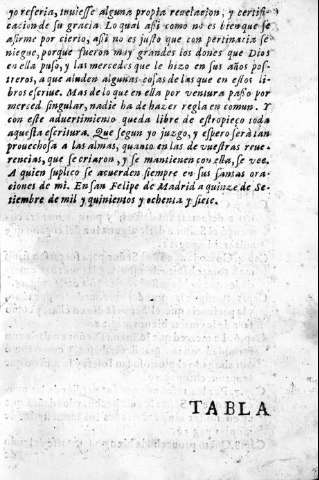 yo referia, tuuiesse alguna propia reuelacion, y certifi-
cacion de su gracia. Lo qual assi como no es bien que se
afirme por cierto, assi no es justo que con pertinacia se
niegue, porque fueron muy grandes los dones que Dios
en ella puso, y las mercedes que le hizo en sus años pos-
treros, a que aluden algunas cosas de las que en estos li-
bros escriue. Mas de lo que en ella por ventura passo por
merced singular, nadie ha de hazer regla en comun. Y con
este aduertimiento queda libre de estropieço toda
aquesta escritura. Que segun yo juzgo, y espero sera tan
prouechosa a las almas, quanto en las de vuestras reue-
rencias, que se criaron, y se mantienen con ella, se vee.
A quien suplico se acuerden siempre en sus santas ora-
ciones de mi. En san Felipe de Madrid a quinze de Se-
tiembre de mil y quinientos y ochenta y siete.
TABLA